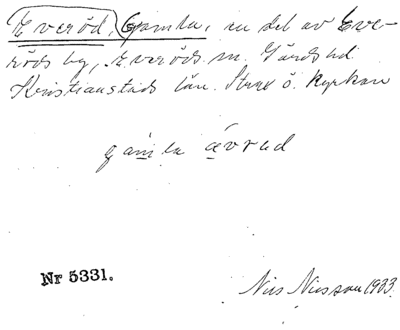 Everöd, Gamla, en del av Eve-
röds by, Everöds sn. Gärds hd
Kristianstads län. Strax ö. kyrkan
gamla ävrud
Nr 5331.
Nils Nilsson 1933.